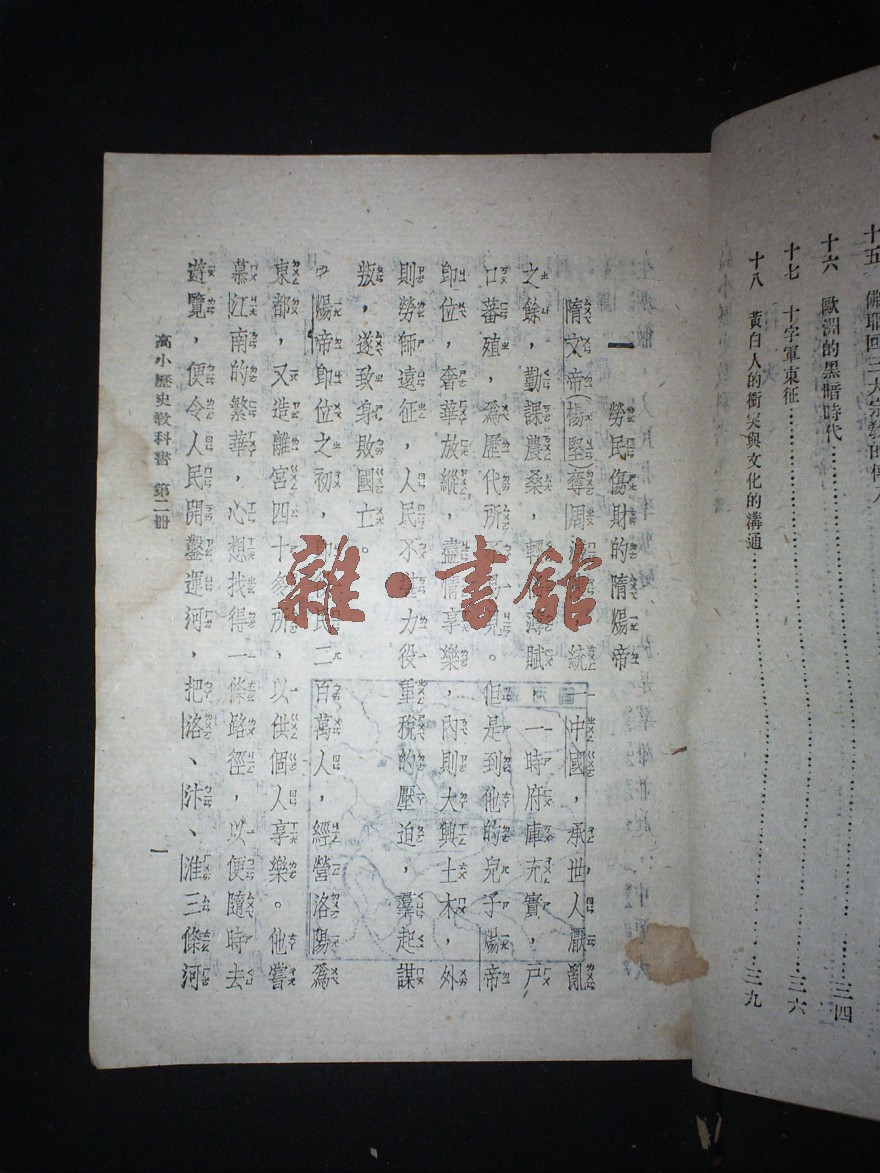 十五 佛耶回三大宗教的傳入
十六 歐洲的黑暗時代……三四
十七 十字軍東征……三六
十八 黃白人的衝突與文化的溝通……三九
一 勞民傷財的隋煬帝
隋文帝(楊堅)奪周 統一中國,承世人厭亂
之餘,勤課農桑,輕 薄賦,一時府庫充實,戶
口蕃殖,爲歷代所不易見。但是到他的兒子煬帝
卽位,奢華放縱,盡情享樂,內則大興土木,外
則勞師遠征,人民不堪力役重稅的壓迫,羣起謀
叛,遂致身敗國亡。
煬帝卽位之初, 民二百萬人,經營洛陽爲
東都,又造離宮四十多所,以供個人享樂。他嘗
慕江南的繁華,心想找得一條路徑,以便隨時去
遊覽,便令人民開鑿運河,把洛、汴、淮三條河
高小歷史敎科書 第二册
一
雜·書館